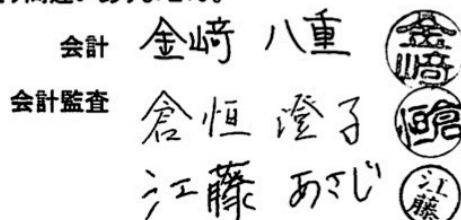 会計 金﨑 八重 金﨑
会計監査 倉恒 澄子 倉恒
江藤 あさじ 江藤